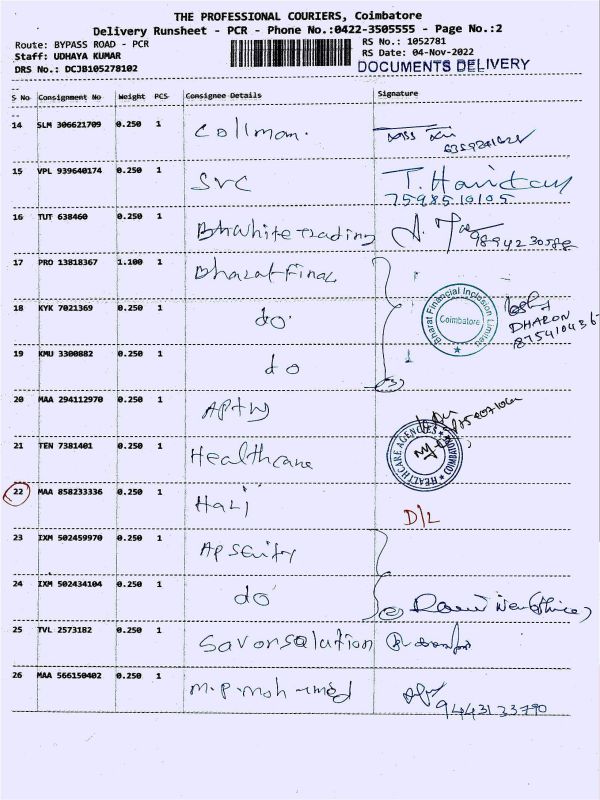 THE PROFESSIONAL COURIERS, Coimbatore
Delivery Runsheet - PCR - Phone No.:0422-3505555 - Page No.:2
Route: BYPASS ROAD - PCR
RS No.: 1052781
Staff: UDHAYA KUMAR
RS Date: 04-Nov-2022
DRS No.: DCJB105278102
DOCUMENTS DELIVERY
S No Consignment No Weight PCS Consignee Details Signature
14 SLM 306621709 0.250 1 Collman.
15 VPL 939640174 0.250 1 SVC
7598510105
16 TUT 638460 0.250 1 Bhwhite trading
9894230586
17 PRO 13818367 1.100 1 Bharat Final
Bharat Financial Inclusion Limited
Coimbatore
18 KYK 7021369 0.250 1 do
DHARON
19 KMU 3300882 0.250 1 do
(3)
20 MAA 294112970 0.250 1
21 TEN 7381401 0.250 1 Healthcare
HEALTHCARE AGENCIES
22 MAA 858233336 0.250 1 Hali
D/L
23 IXM 502459970 0.250 1
24 IXM 502434104 0.250 1 do
25 TVL 2573182 0.250 1 Savonsalution
26 MAA 566150402 0.250 1 M.P.moh-med
9443133790